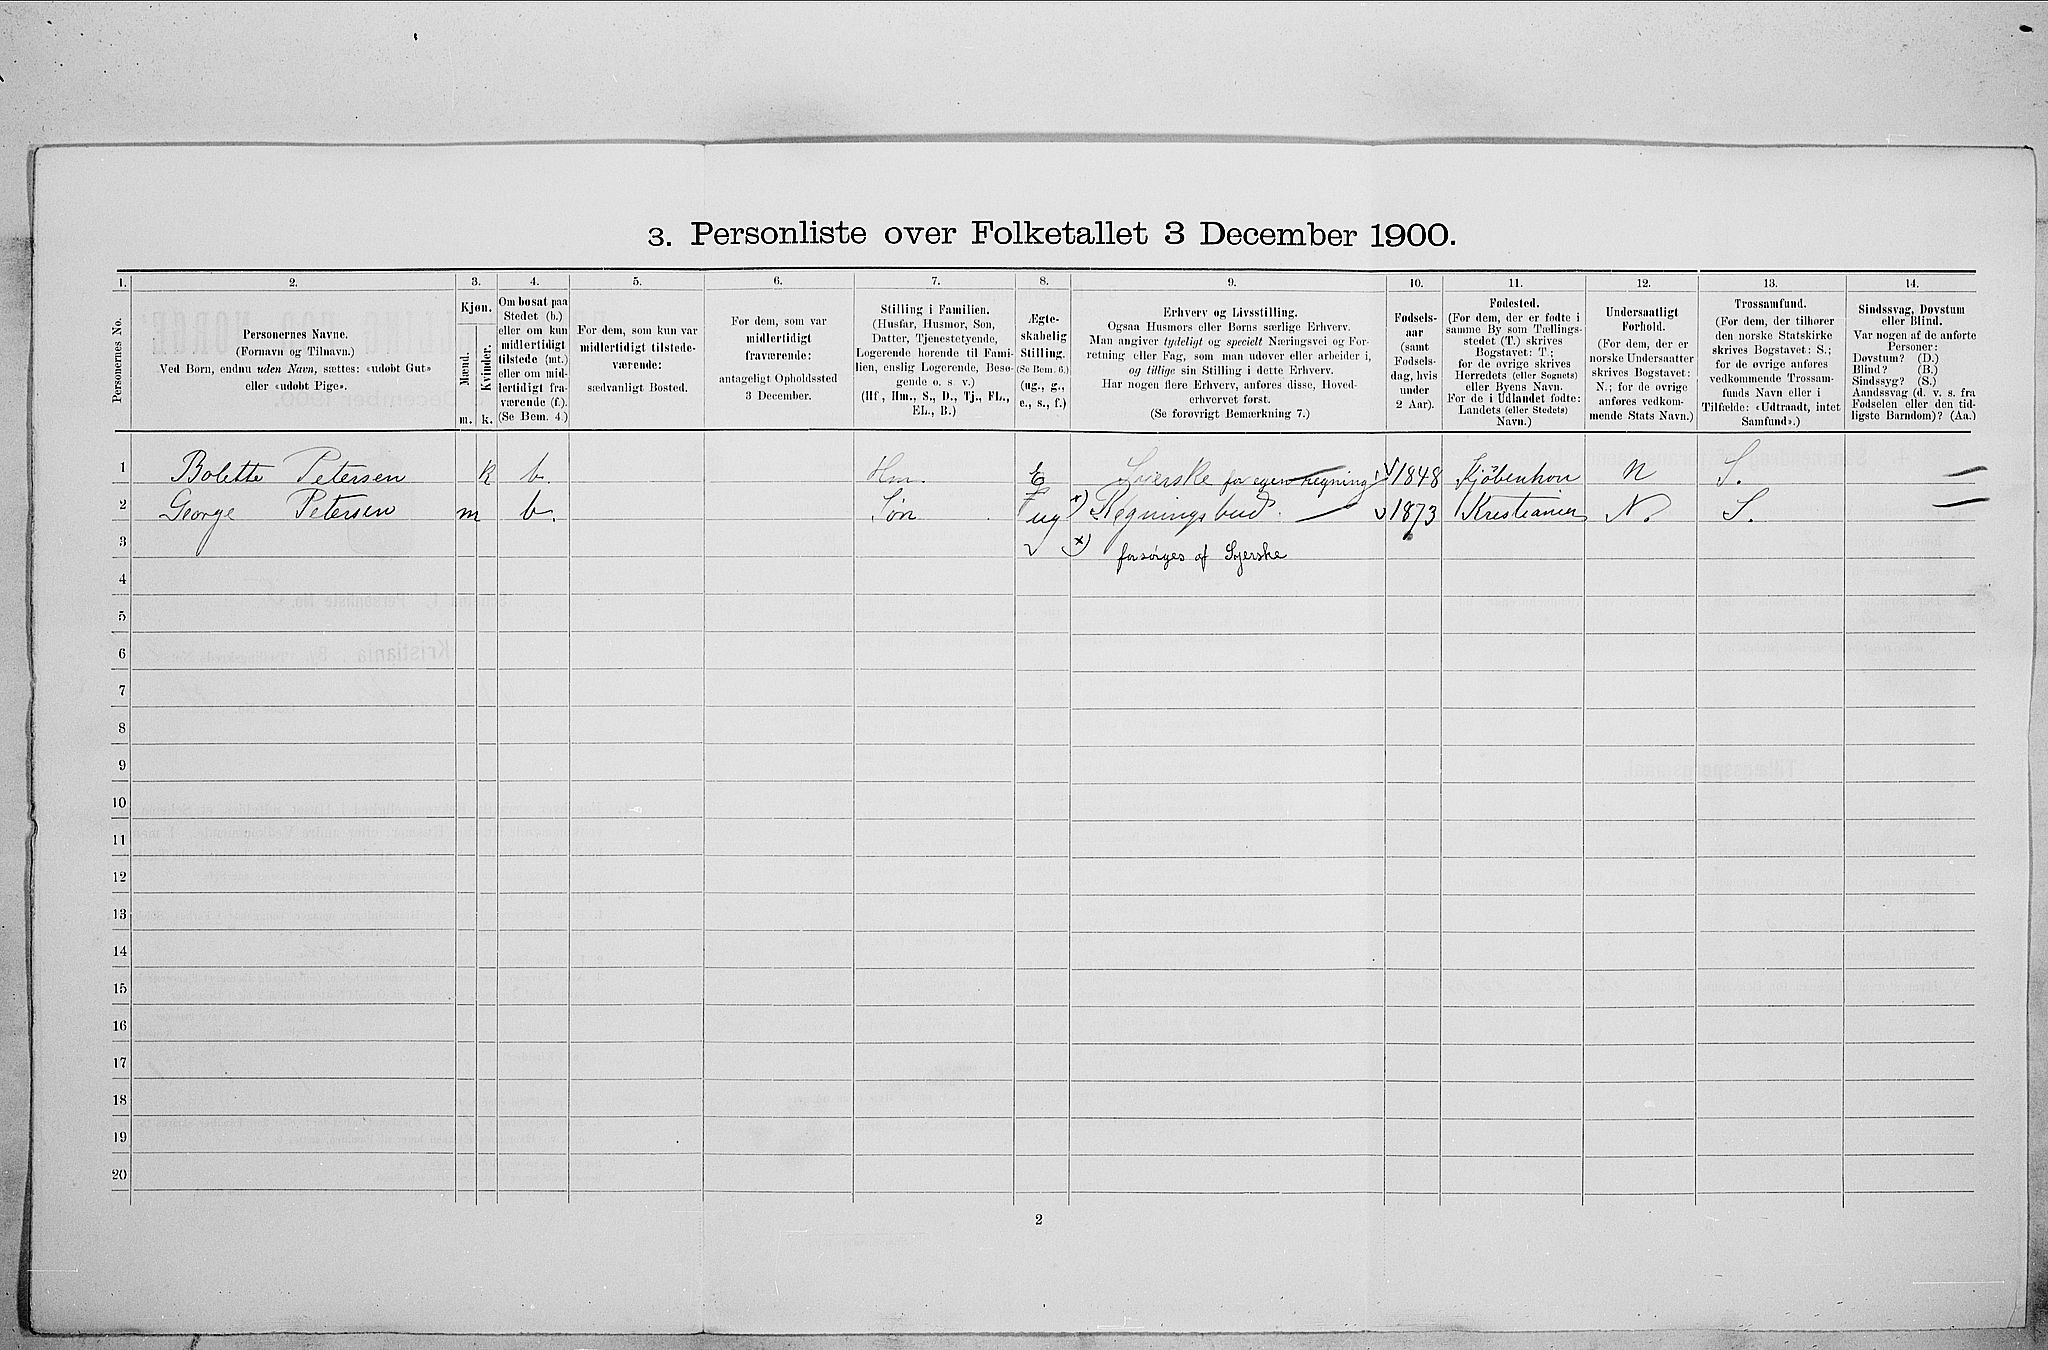 3. Personliste over Folketallet 3 December 1900.
1. 2. 3. 4. 5. 6. 7. 8. 9. 10. 11. 12. 13. 14.
Personernes No.
Personernes Navne.
(Fornavn og Tilnavn.)
Ved Børn, endnu uden Navn, sættes: «udøbt Gut»
eller «udøbt Pige».
Kjøn.
Mænd.
Kvinder.
m. k.
Om bosat paa
Stedet (b.)
eller om kun
midlertidigt
tilstede (mt.)
eller om mid-
lertidigt fra-
værende (f.).
(Se Bem. 4.)
For dem, som kun var
midlertidigt tilstede-
værende:
sædvanligt Bosted.
For dem, som var
midlertidigt
fraværende:
antageligt Opholdssted
3 December.
Stilling i Familien.
(Husfar, Husmor, Søn,
Datter, Tjenestetyende,
Logerende hørende til Fami-
lien, enslig Logerende, Besø-
gende o. s. v.)
(Hf, Hm., S., D., Tj., FL.,
EL., B.)
Ægte-
skabelig
Stilling.
(Se Bem. 6.)
(ug., g.,
e., s., f.)
Erhverv og Livsstilling.
Ogsaa Husmors eller Børns særlige Erhverv.
Man angiver tydeligt og specielt Næringsvei og For-
retning eller Fag, som man udøver eller arbeider i,
og tillige sin Stilling i dette Erhverv.
Har nogen flere Erhverv, anføres disse, Hoved-
erhvervet først.
(Se forøvrigt Bemærkning 7.)
Fødsels-
aar
(samt
Fødsels-
dag, hvis
under
2 Aar).
Fødested.
(For dem, der er fødte i
samme By som Tællings-
stedet (T.) skrives
Bogstavet: T.;
for de øvrige skrives
Herredets (eller Sognets)
eller Byens Navn.
For de i Udlandet fødte:
Landets (eller Stedets)
Navn.)
Undersaatligt
Forhold.
(For dem, der er
norske Undersaatter
skrives Bogstavet:
N.; for de øvrige
anføres vedkom-
mende Stats Navn.)
Trossamfund.
(For dem, der tilhører
den norske Statskirke
skrives Bogstavet: S.;
for de øvrige anføres
vedkommende Trossam-
funds Navn eller i
Tilfælde: «Udtraadt, intet
Samfund».)
Sindssvag, Døvstum
eller Blind.
Var nogen af de anførte
Personer:
Døvstum? (D.)
Blind? (B.)
Sindssyg? (S.)
Aandssvag (d. v. s. fra
Fødselen eller den tid-
ligste Barndom)? (Aa.)
1 Bolette Petersen k b. Hm. E for egen regning 1848 Kjøbenhavn N S. —
2 George Petersen m b. Søn ug x) Regningsbud. 1873 Kristiania N. S. —
3 x) forsørges af Syerske
4
5
6
7
8
9
10
11
12
13
14
15
16
17
18
19
20
2